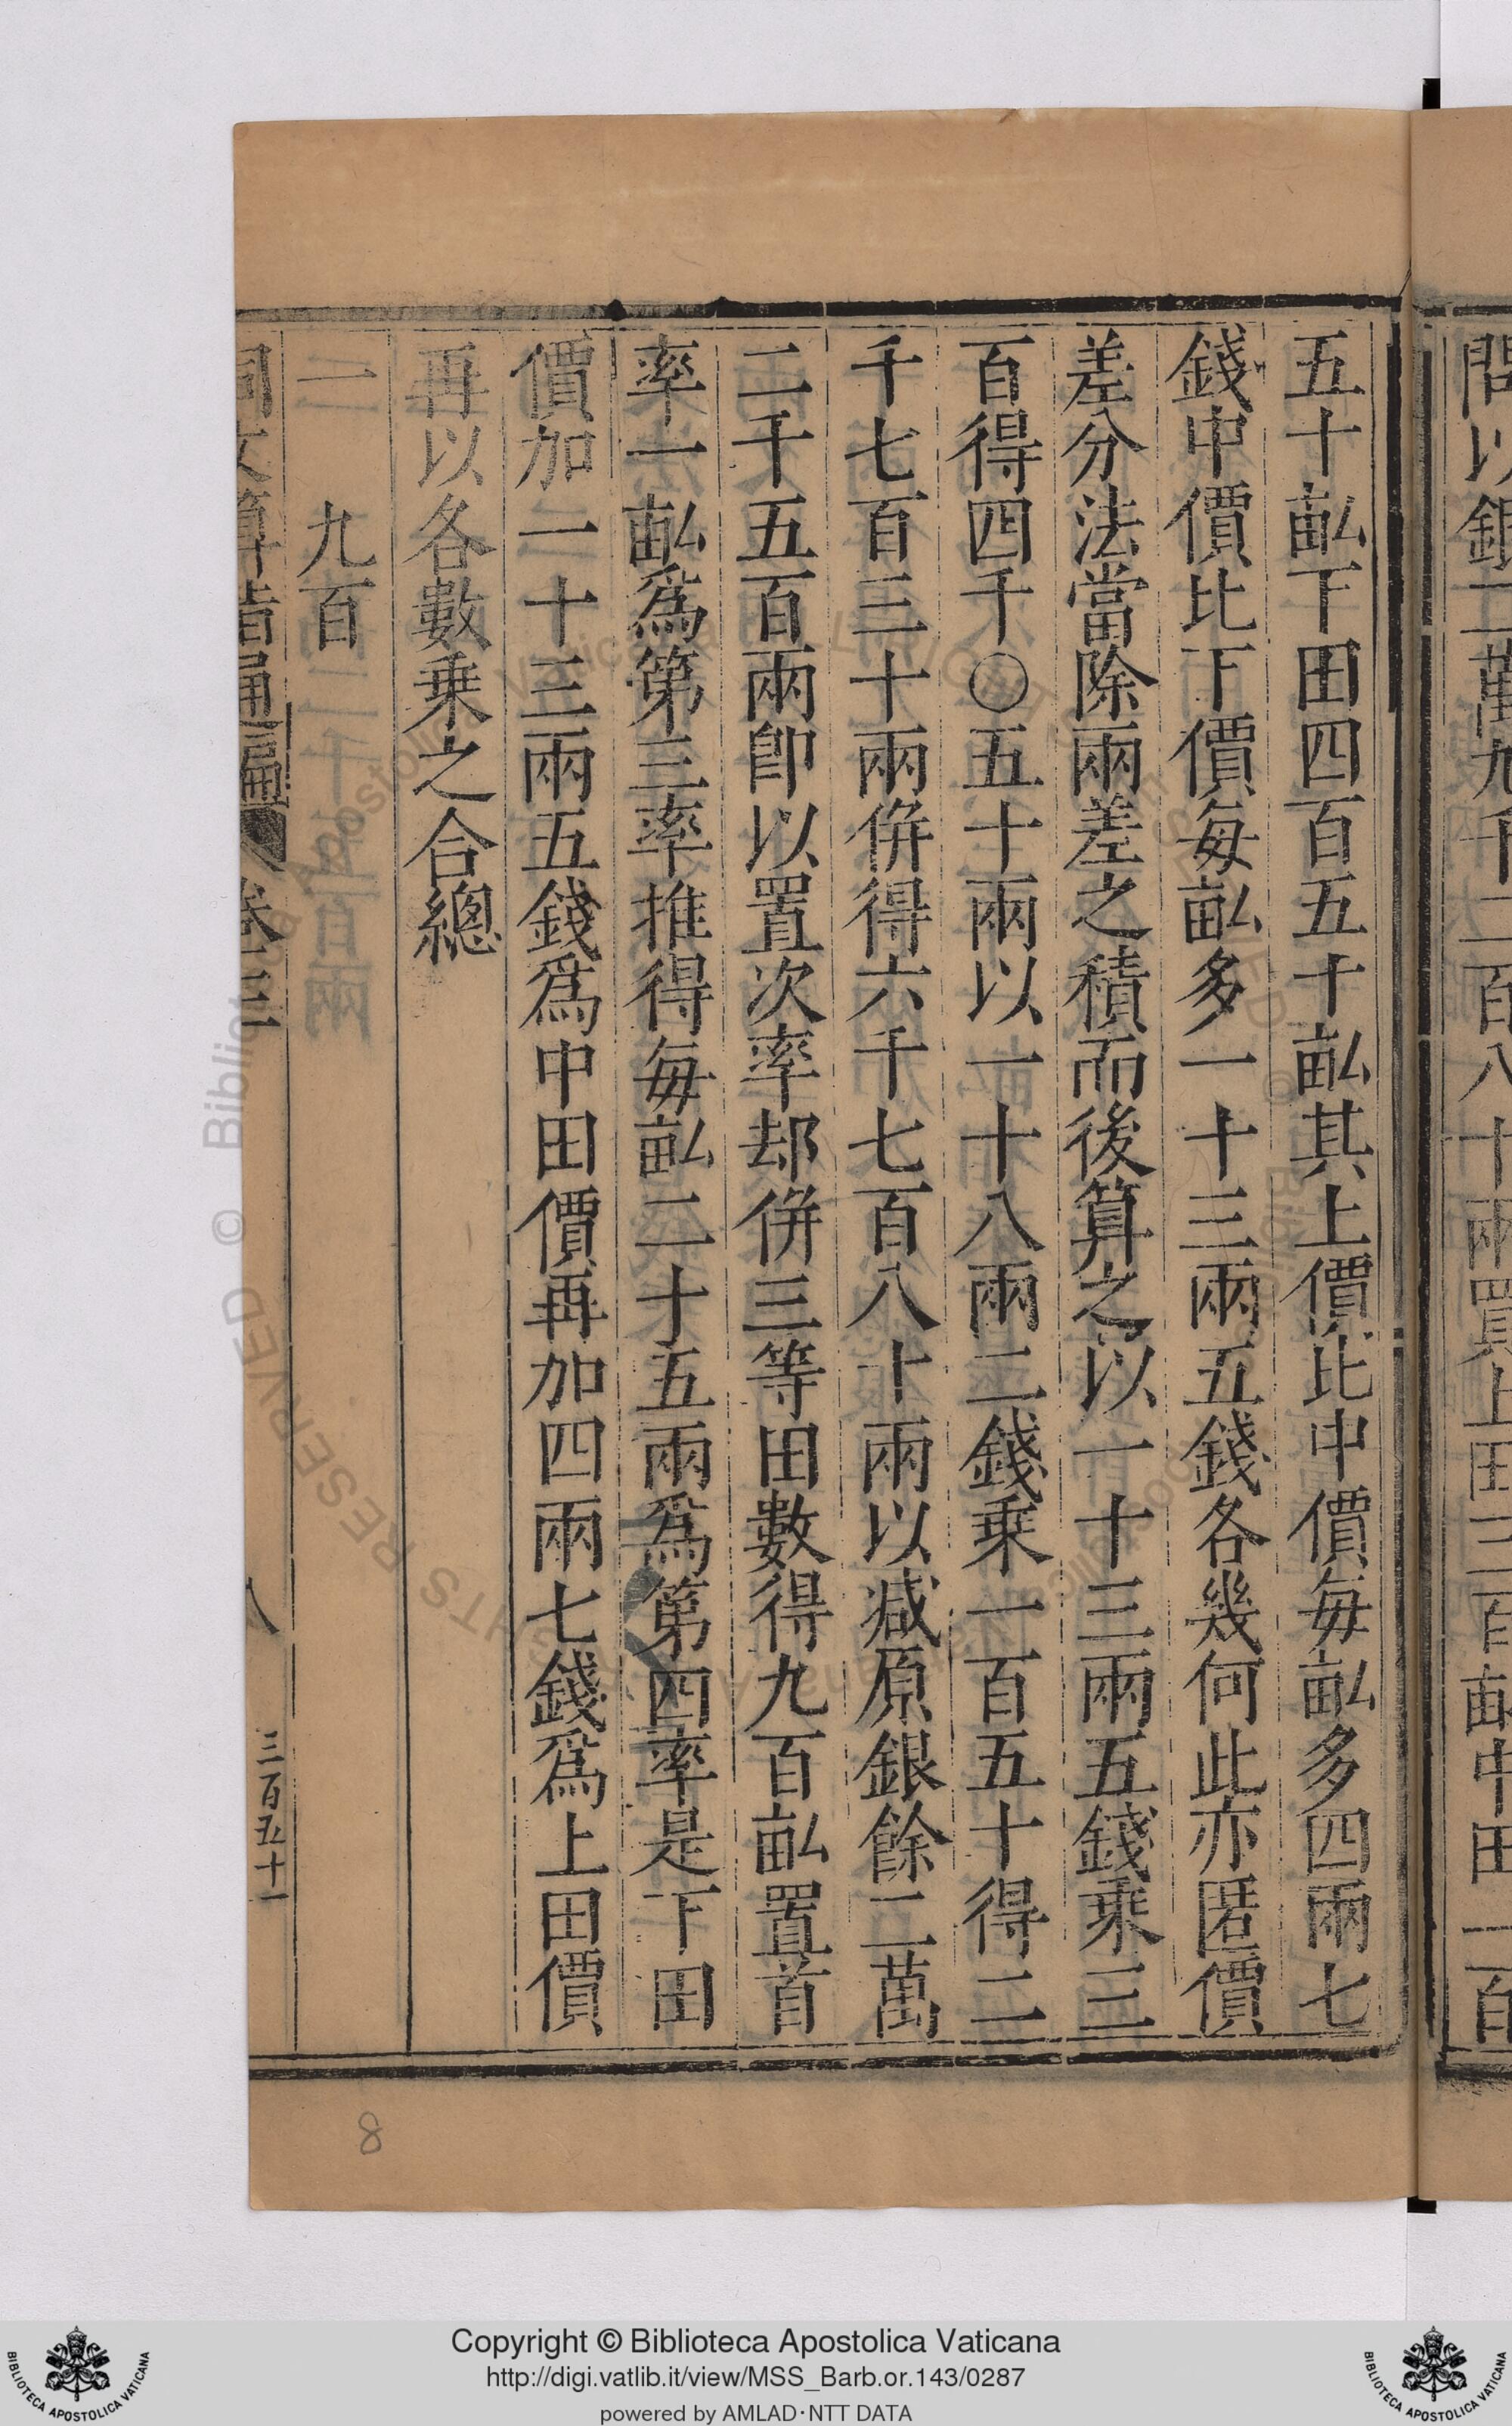 問以銀二萬九千二百八十兩買上田三百畝中田一百
五十畝下田四百五十畝其上價比中價每畝多四兩七
錢中價比下價每畝多一十三兩五錢各幾何此亦匿價
差分法當除兩差之積而後算之以一十三兩五錢乘三
百得四千〇五十兩以一十八兩二錢乘一百五十得二
千七百三十兩併得六千七百八十兩以减原銀餘二萬
二千五百兩卽以置次率却併三等田數得九百畝置首
率一畝爲第三率推得每畝二十五兩爲第四率是下田
價加一十三兩五錢爲中田價再加四兩七錢爲上田價
再以各數乗之合總
一 九百
同文算指通編 卷三 八 三百五十一
8
© Biblioteca Apostolica Vaticana
Copyright © Biblioteca Apostolica Vaticana
http://digi.vatlib.it/view/MSS_Barb.or.143/0287
powered by AMLAD·NTT DATA
BIBLIOTECA APOSTOLICA VATICANA
BIBLIOTECA APOSTOLICA VATICANA